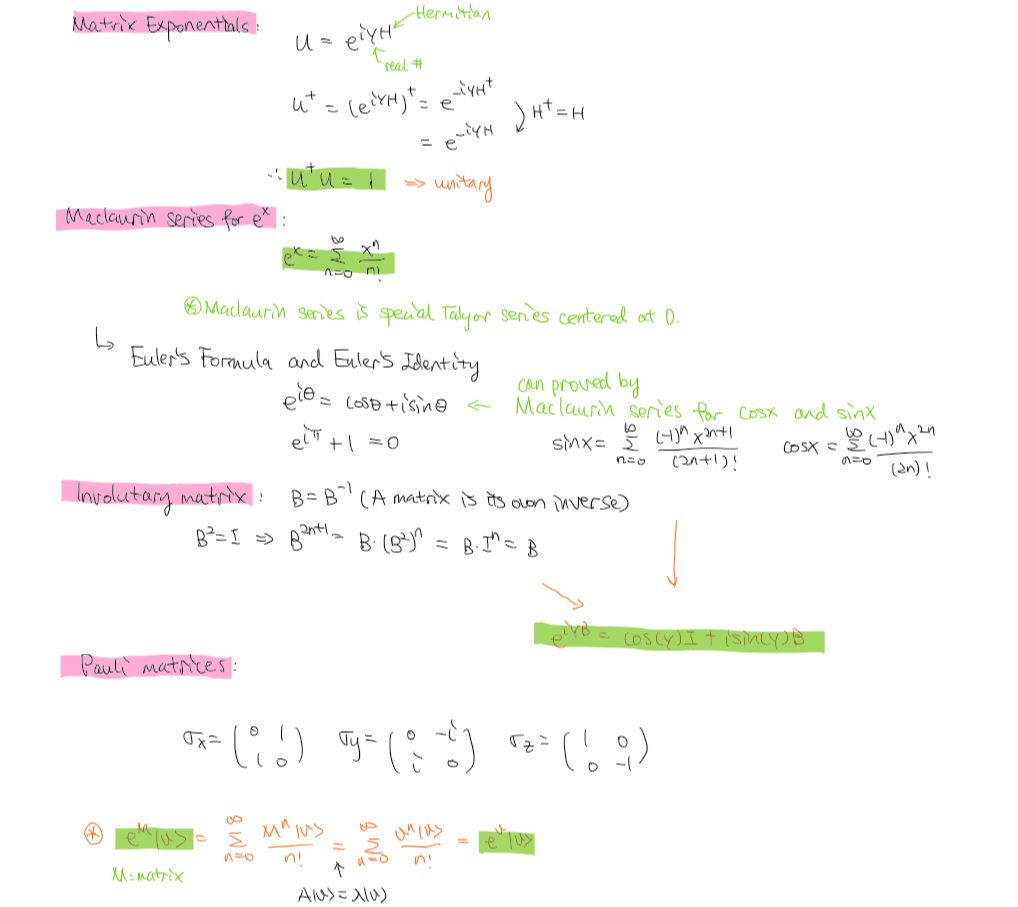 Matrix Exponentials:
U = e^{iγH}
Hermitian
real #
U† = (e^{iγH})† = e^{-iγH†}
= e^{-iγH}
H† = H
∴ U†U = 1 ⇒ unitary
Maclaurin series for e^x :
e^x = ∑_{n=0}^{∞} x^n / n!
⊛ Maclaurin series is special Talyor series centered at 0.
↳ Euler's Formula and Euler's Identity
e^{iθ} = cosθ + isinθ ←
can proved by
Maclaurin series for cosx and sinx
e^{iπ} + 1 = 0
sinx = ∑_{n=0}^{∞} (-1)^n x^{2n+1} / (2n+1)!
cosx = ∑_{n=0}^{∞} (-1)^n x^{2n} / (2n)!
Involutary matrix : B = B^{-1} (A matrix is its own inverse)
B² = I ⇒ B^{2n+1} = B·(B²)^n = B·I^n = B
e^{iγB} = cos(γ)I + isin(γ)B
Pauli matrices:
σx = ( 0 1 ; 1 0 ) σy = ( 0 -i ; i 0 ) σz = ( 1 0 ; 0 -1 )
⊛ e^M |v> = ∑_{n=0}^{∞} M^n |v> / n! = ∑_{n=0}^{∞} v^n |v> / n! = e^v |v>
M: matrix
A|v> = λ|v>